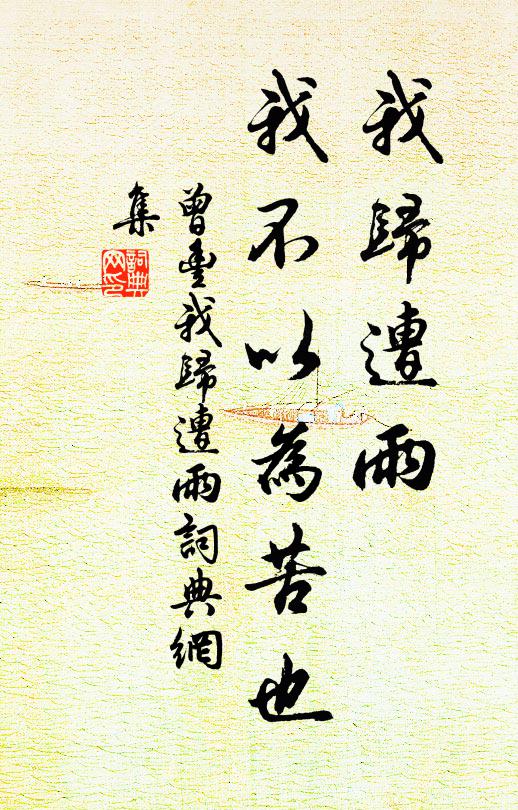 我歸遭雨
我不以為苦也
曾豐我歸遭雨詞典網
集
詞典
网印